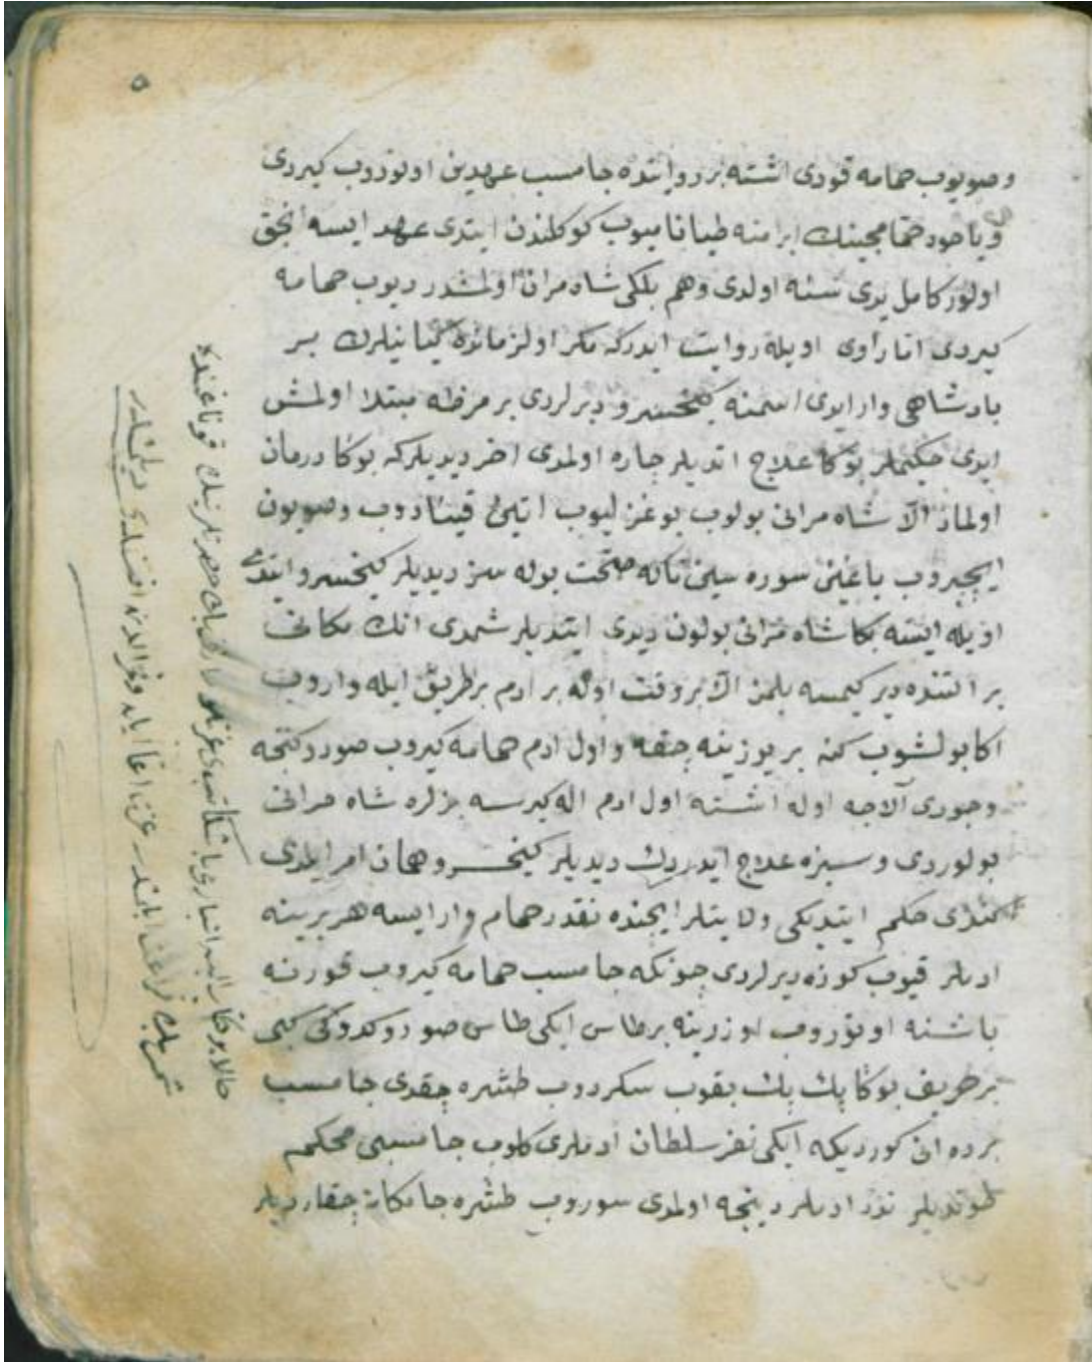 ٥
وصویوب حمامه قودی اشته بر روایتده جامسب عهدین اونودوب کیردی
ویاخود حمامجینك ابرامنه طیانامیوب کوکلندن ایتدی عهد ایسه انجق
اولور کامل یدی سنه اولدی وهم بلکی شاه مران اولمشدر دیوب حمامه
کیردی اتا راوی اویله روایت ایدرکه مکر اول زمانده کیانیلرك بر
پادشاهی وار ایدی اسمنه کیخسرو دیرلردی بر مرضه مبتلا اولمش
ایدی حکیملر بوکا علاج اتدیلر چاره اولمدی اخر دیدیلرکه بوکا درمان
اولماز الا شاه مرانی بولوب بوغزلیوب اتینی قیناروب وصویون
ایچیروب یاغینی سوره سین تاکه صحت بوله سز دیدیلر کیخسرو ایتدی
اویله ایسه بکا شاه مرانی بولون دیدی ایتدیلر شمدی انك مکانی
یر التنده دیر کیمسه بلمز الا بر وقت اوله بر ادم بر طریق ایله واروب
اکا بولشوب کنه یر یوزینه چقه واول ادم حمامه کیروب صو دوکنجه
وجودی الاجه اوله اشته اول ادم اله کیرسه بزلره شاه مرانی
بولوردی وسیزه علاج ایدردك دیدیلر کیخسرو همان امر ایلدی
کندی حکم ایتدیکی ولایتلر ایچنده نقدر حمام وار ایسه هر بریینه
ادملر قیوب کوزه دیرلردی چونکه جامسب حمامه کیروب قورنه
باشنه اوتوروب اوزرینه بر طاس ایکی طاس صو دوکدوکی کبی
بر حریف بوکا پك پك بقوب سکردوب طشره چقدی جامسب
بردە انی کوردیکه ایکی نفر سلطان ادملری کلوب جامسبی محکم
طوتدیلر نه ادملر دینجه اولمدی سوروب طشره جامکانه چقاردیلر